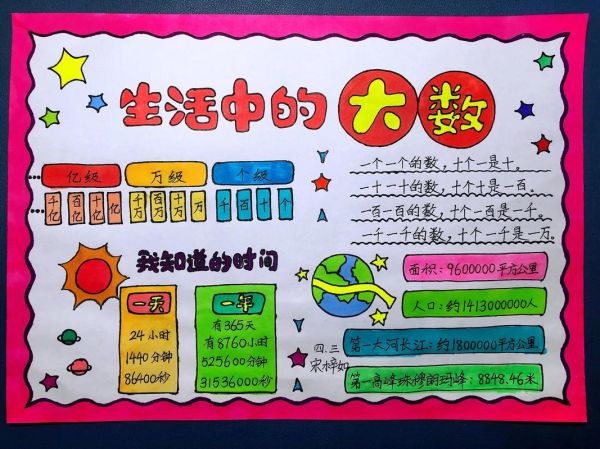 生活中的大数
亿级 万级 个级
千亿 百亿 十亿 亿 千万 百万 十万 万 千 百 十 个
一个一个的数，十个一是十。
一十一十的数，十个十是一百。
一百一百的数，十个一百是一千。
一千一千的数，十个一千是一万。
我知道的时间
一天
24小时
1440分钟
86400秒
一年
有365天
有8760小时
525600分钟
31536000秒
面积：9600000平方公里
人口：约1413000000人
第一大河长江：约1800000平方公里
第一高峰珠穆朗玛峰：8848.46米
四.三
宋梓如